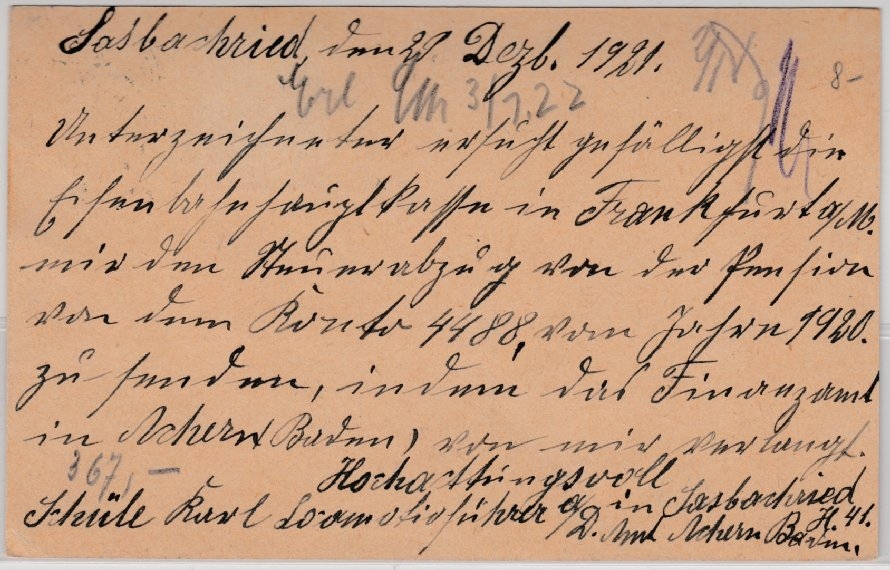 Sasbachried, den 29. Dezb. 1921.
Erl 3/1.22
8-
Unterzeichneter ersucht gefälligst die
Eisenbahnhauptkasse in Frankfurt a/M.
mir den Steuerabzug von der Pension
von dem Konto 4488, vom Jahre 1920.
zu senden, indem das Finanzamt
in Achern (Baden) von mir verlangt.
367,-
Hochachtungsvoll
Schüle Karl Locomotivführer a/D. in Sasbachried
H. 41.
Amt Achern Baden.